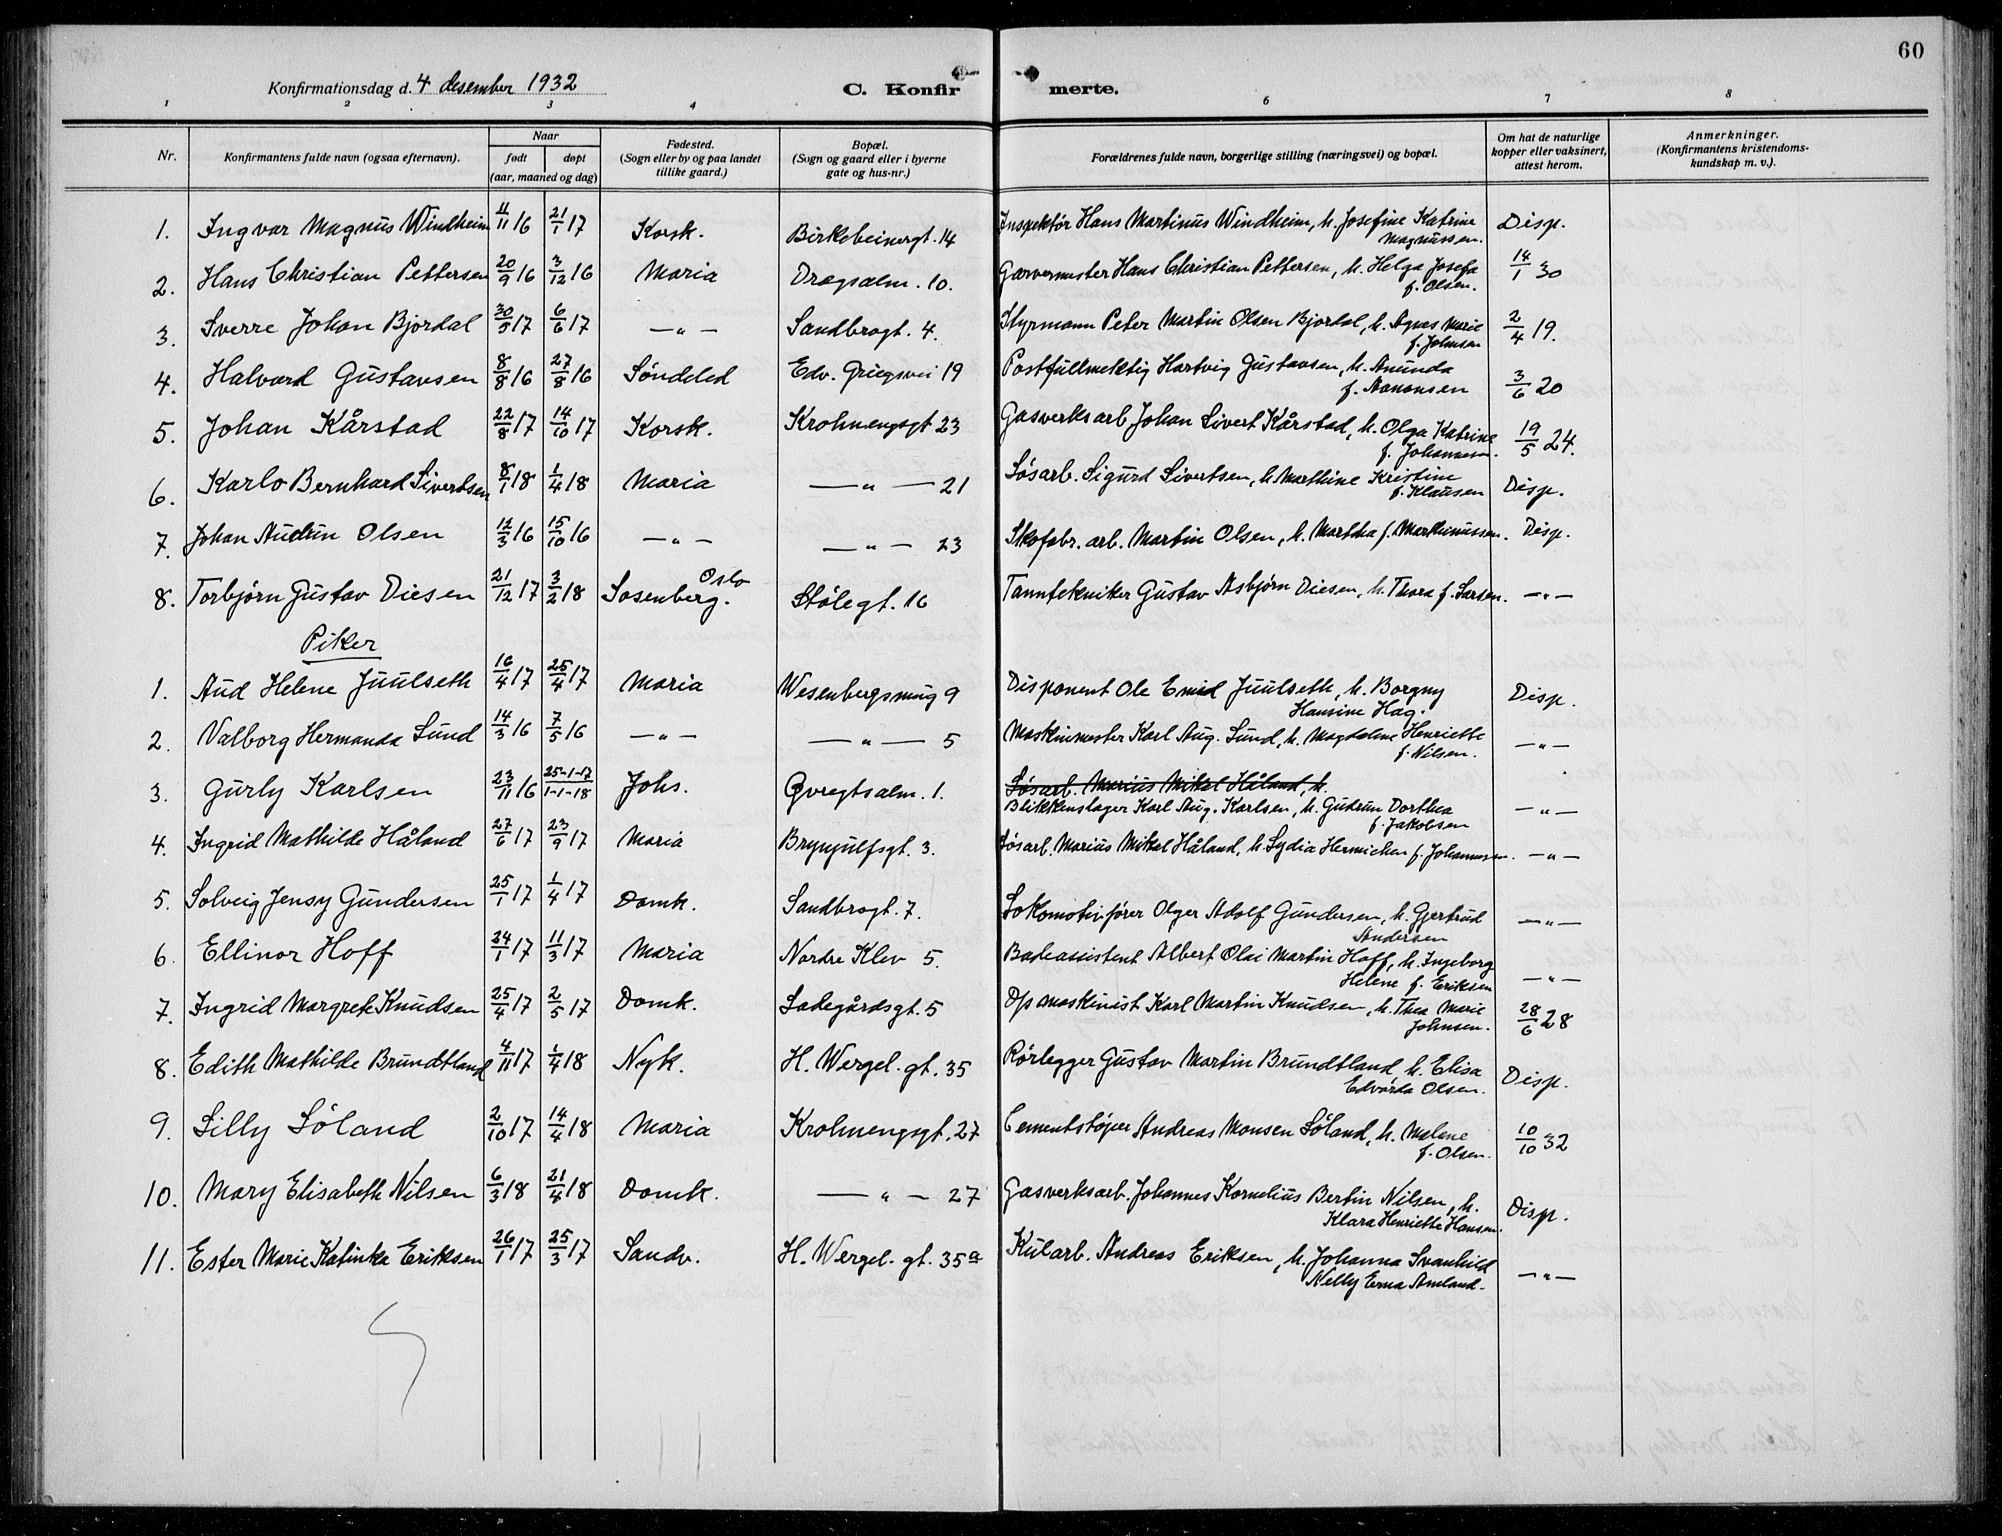 60
Konfirmationsdag d. 4 desember 1932
C. Konfirmerte.
1 2 3 4 6 7 8
Nr. Konfirmantens fulde navn (ogsaa efternavn). Naar født døpt (aar, maaned og dag) Fødested. (Sogn eller by og paa landet tillike gaard.) Bopæl. (Sogn og gaard eller i byerne gate og hus-nr.) Forældrenes fulde navn, borgerlige stilling (næringsvei) og bopæl. Om hat de naturlige kopper eller vaksinert, attest herom. Anmerkninger. (Konfirmantens kristendomskundskap m. v.).
1. Ingvar Magnus Windheim 11/11 16 21/1 17 Korsk. Birkebeinergt. 14 Inspektør Hans Martinus Windheim, h. Josefine Katrine Magnussen. Disp.
2. Hans Christian Pettersen 20/9 16 3/12 16 Maria Drægsalm. 10. Garvermester Hans Christian Pettersen, h. Helga Josefa f. Olsen. 14/1 30
3. Sverre Johan Bjordal 30/5 17 6/6 17 —"— Sandbrogt. 4. Styrmann Peter Martin Olsen Bjordal, h. Agnes Marie f. Johnsen 2/4 19.
4. Halvard Gustavsen 8/8 16 27/8 16 Søndeled Edv. Griegsvei 19 Postfullmektig Hartvig Gustavsen, h. Anunda f. Aanonsen 3/6 20
5. Johan Kårstad 22/8 17 14/10 17 Korsk. Krohnengsgt 23 Gasverksarb. Johan Sivert Kårstad, h. Olga Katrine f. Johannesen. 19/5 24.
6. Karlo Bernhard Sivertsen 8/1 18 1/4 18 Maria —"— 21 Løsarb. Sigurd Sivertsen, h. Marthine Kristine f. Klausen Disp.
7. Johan Audun Olsen 12/3 16 15/10 16 —"— —"— 23 Skofabr. arb. Martin Olsen, h. Martha f. Marthinussen. Disp.
8. Torbjørn Gustav Diesen 21/12 17 3/2 18 Oslo Stølegt. 16 Tanntekniker Gustav Asbjørn Diesen, h. Thora f. Larsen. —"—
Piker
1. Aud Helene Juulseth 16/4 17 25/4 17 Maria Wesenbergsmug 9 Disponent Ole Emil Juulseth, h. Borgny Hansine Hag. Disp.
2. Valborg Hermanda Lund 14/3 16 7/5 16 —"— —"— 5 Maskinmester Karl Aug. Lund, h. Magdalene Henriette f. Nilsen. —"—
3. Gurly Karlsen 23/11 16 25-1-17 1-1-18 Johs. Øvregtsalm. 1. Løsarb. Marius Mikal Håland, h.
Blikkenslager Karl Aug. Karlsen, h. Gudrun Dorthea f. Jakobsen —"—
4. Ingrid Mathilde Håland 27/6 17 23/9 17 Maria Brynjulfsgt. 3. Løsarb. Marius Mikal Håland, h. Lydia Hermichen f. Johannesen. —"—
5. Solveig Jensy Gundersen 25/1 17 1/4 17 Domk. Sandbrogt. 7. Lokomotivfører Olger Adolf Gundersen, h. Gjertrud Andersen —"—
6. Ellinor Hoff 24/1 17 11/3 17 Maria Nordre Klev 5. Badeassistent Albert Olai Martin Hoff, h. Ingeborg Helene f. Eriksen —"—
7. Ingrid Margrete Knudsen 25/4 17 2/5 17 Domk. Ladegårdsgt. 5 D/s maskinist Karl Martin Knudsen, h. Thea Marie Johnsen. 28/6 28
8. Edith Mathilde Brundtland 4/11 17 1/4 18 Nyk. H. Wergel. gt. 35 Rørlegger Gustav Martin Brundtland, h. Elisa Edvarda Olsen. Disp.
9. Lilly Løland 2/10 17 14/4 18 Maria Krohnengsgt. 27 Cementstøper Andreas Monsen Løland, h. Malene f. Olsen. 10/10 32
10. Mary Elisabeth Nilsen 6/3 18 21/4 18 Domk. —"— 27 Gasverksarb. Johannes Kornelius Bertin Nilsen, h. Klara Henriette Hansen. Disp.
11. Ester Marie Katinka Eriksen 26/1 17 25/3 17 Sandv. H. Wergel. gt. 35a Kularb. Andreas Eriksen, h. Johanna Svanhild Nelly Erna Amland. —"—